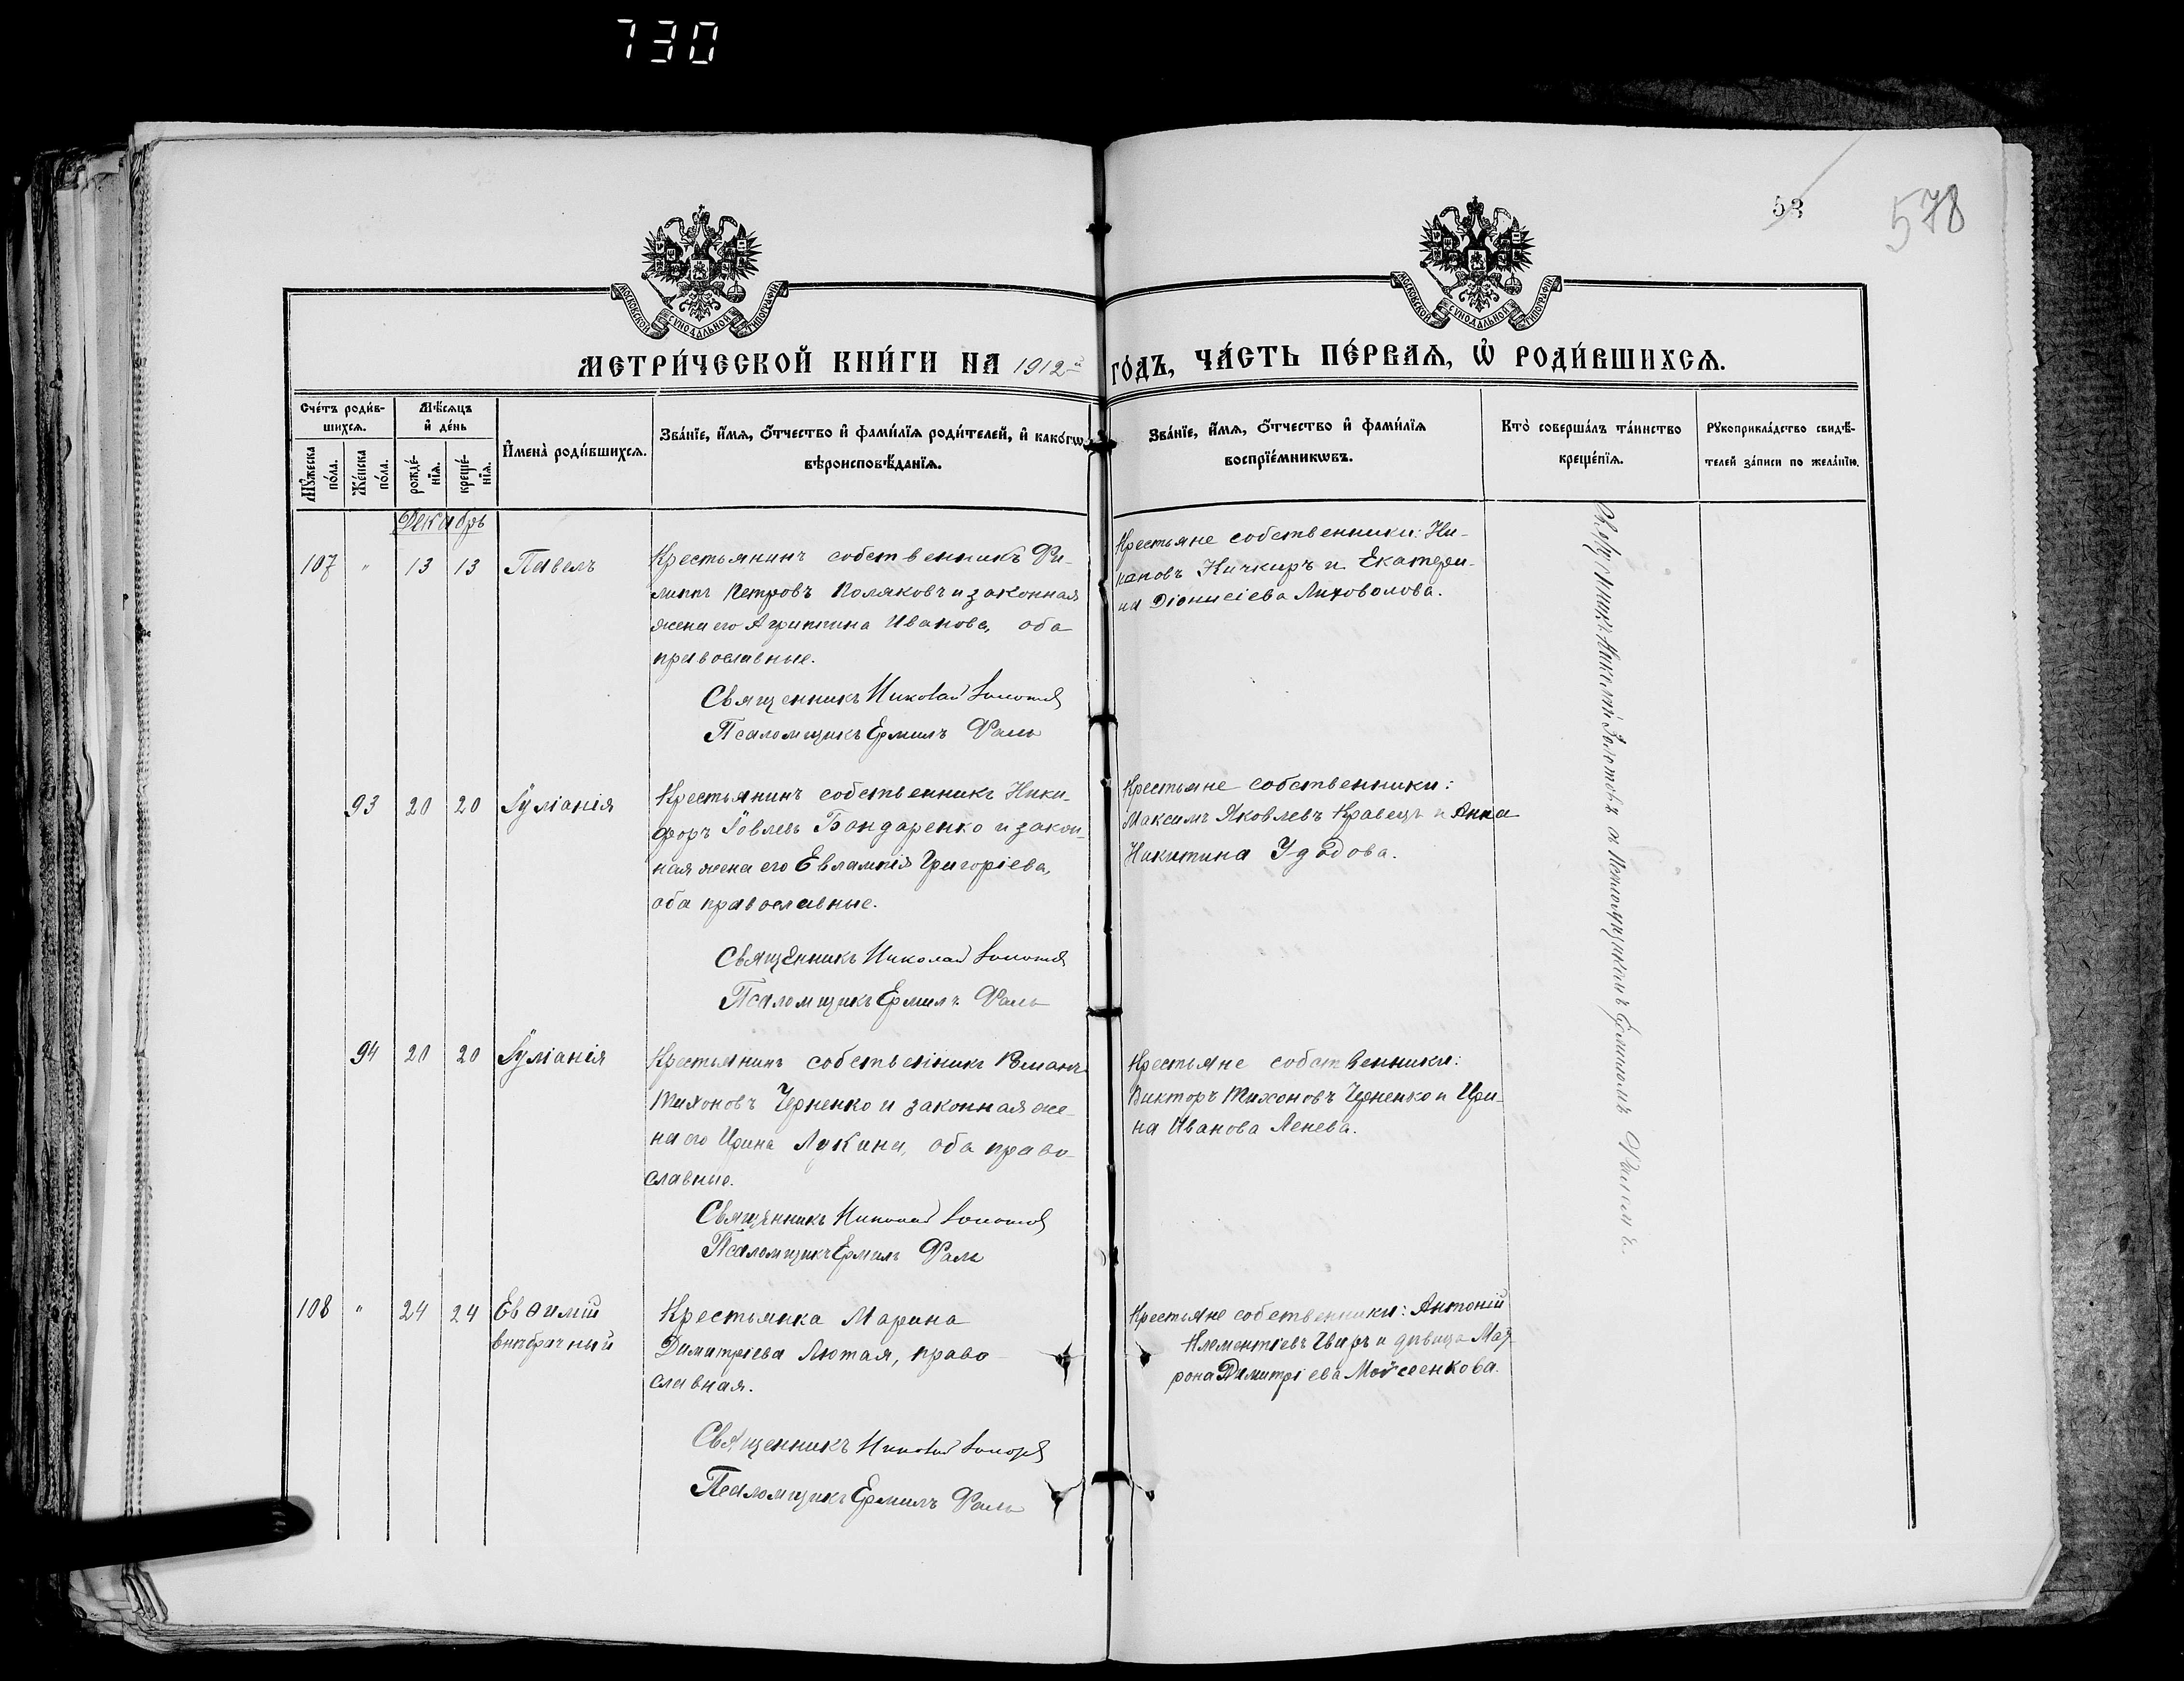 730
53
578
МОСКОВСКОЙ СѴНОДАЛЬНОЙ ТИПОГРАФІИ
МОСКОВСКОЙ СѴНОДАЛЬНОЙ ТИПОГРАФІИ
МЕТРИ́ЧЕСКОЙ КНИ́ГИ НА 1912й ГО́ДЪ, ЧА́СТЬ ПЕ́РВАЯ, Ѡ҆ РОДИ́ВШИХСЯ.
Сче́тъ роди́в-
шихся.
Мꙋ́жеска
по́ла.
Же́нска
по́ла.
Мѣ́сяцъ
и҆ де́нь
рожде́-
нїя.
креще́-
нїя.
И҆мена̀ роди́вшихся.
Зва́нїе, и҆́мя, ѻ҆́тчество и҆ фами́лїя роди́телей, и҆ како́гѡ
вѣроисповѣ́данїя.
Зва́нїе, и҆́мя, ѻ҆́тчество и҆ фами́лїя
воспрїе́мникѡвъ.
Кто̀ соверша́лъ та́инство
креще́нїя.
Рꙋкоприкла́дство свидѣ́-
телей за́писи по жела́нїю.
Декабрь
107 " 13 13 Павелъ
Крестьянинъ собственникъ Фи-
липпъ Петровъ Поляковъ и законная
жена его Агриппина Иванова, оба
православные.
Священникъ Николай Золотовъ
Псаломщикъ Ермилъ Фаль
Крестьяне собственники: Ни-
Кичкиръ и Екатери-
на Діонисіева Лиховолова.
93 20 20 Іуліанія
Крестьянинъ собственникъ Ники-
форъ Іовлевъ Бондаренко и закон-
ная жена его Евлампія Григоріева,
оба православные.
Священникъ Николай Золотовъ
Псаломщикъ Ермилъ Фаль
Крестьяне собственники:
Максимъ Яковлевъ Кравецъ и Анна
Никитина Удодова.
94 20 20 Іуліанія
Крестьянинъ собственникъ
Тихоновъ Черненко и законная же-
на его Ирина Лукина, оба право-
славные.
Священникъ Николай Золотовъ
Псаломщикъ Ермилъ Фаль
Крестьяне собственники:
Викторъ Тихоновъ Черненко и Ири-
на Иванова Ленева.
108 " 24 24 Евѳимій
внѣбрачный
Крестьянка Марина
Димитріева Лютая, право-
славная.
Священникъ Николай Золотовъ
Псаломщикъ Ермилъ Фаль
Крестьяне собственники: Антоній
Климентіевъ и дѣвица Мат-
рона Димитріева Мойсеенкова.
Николай Золотовъ съ Псаломщикомъ Ермиломъ Фалемъ.